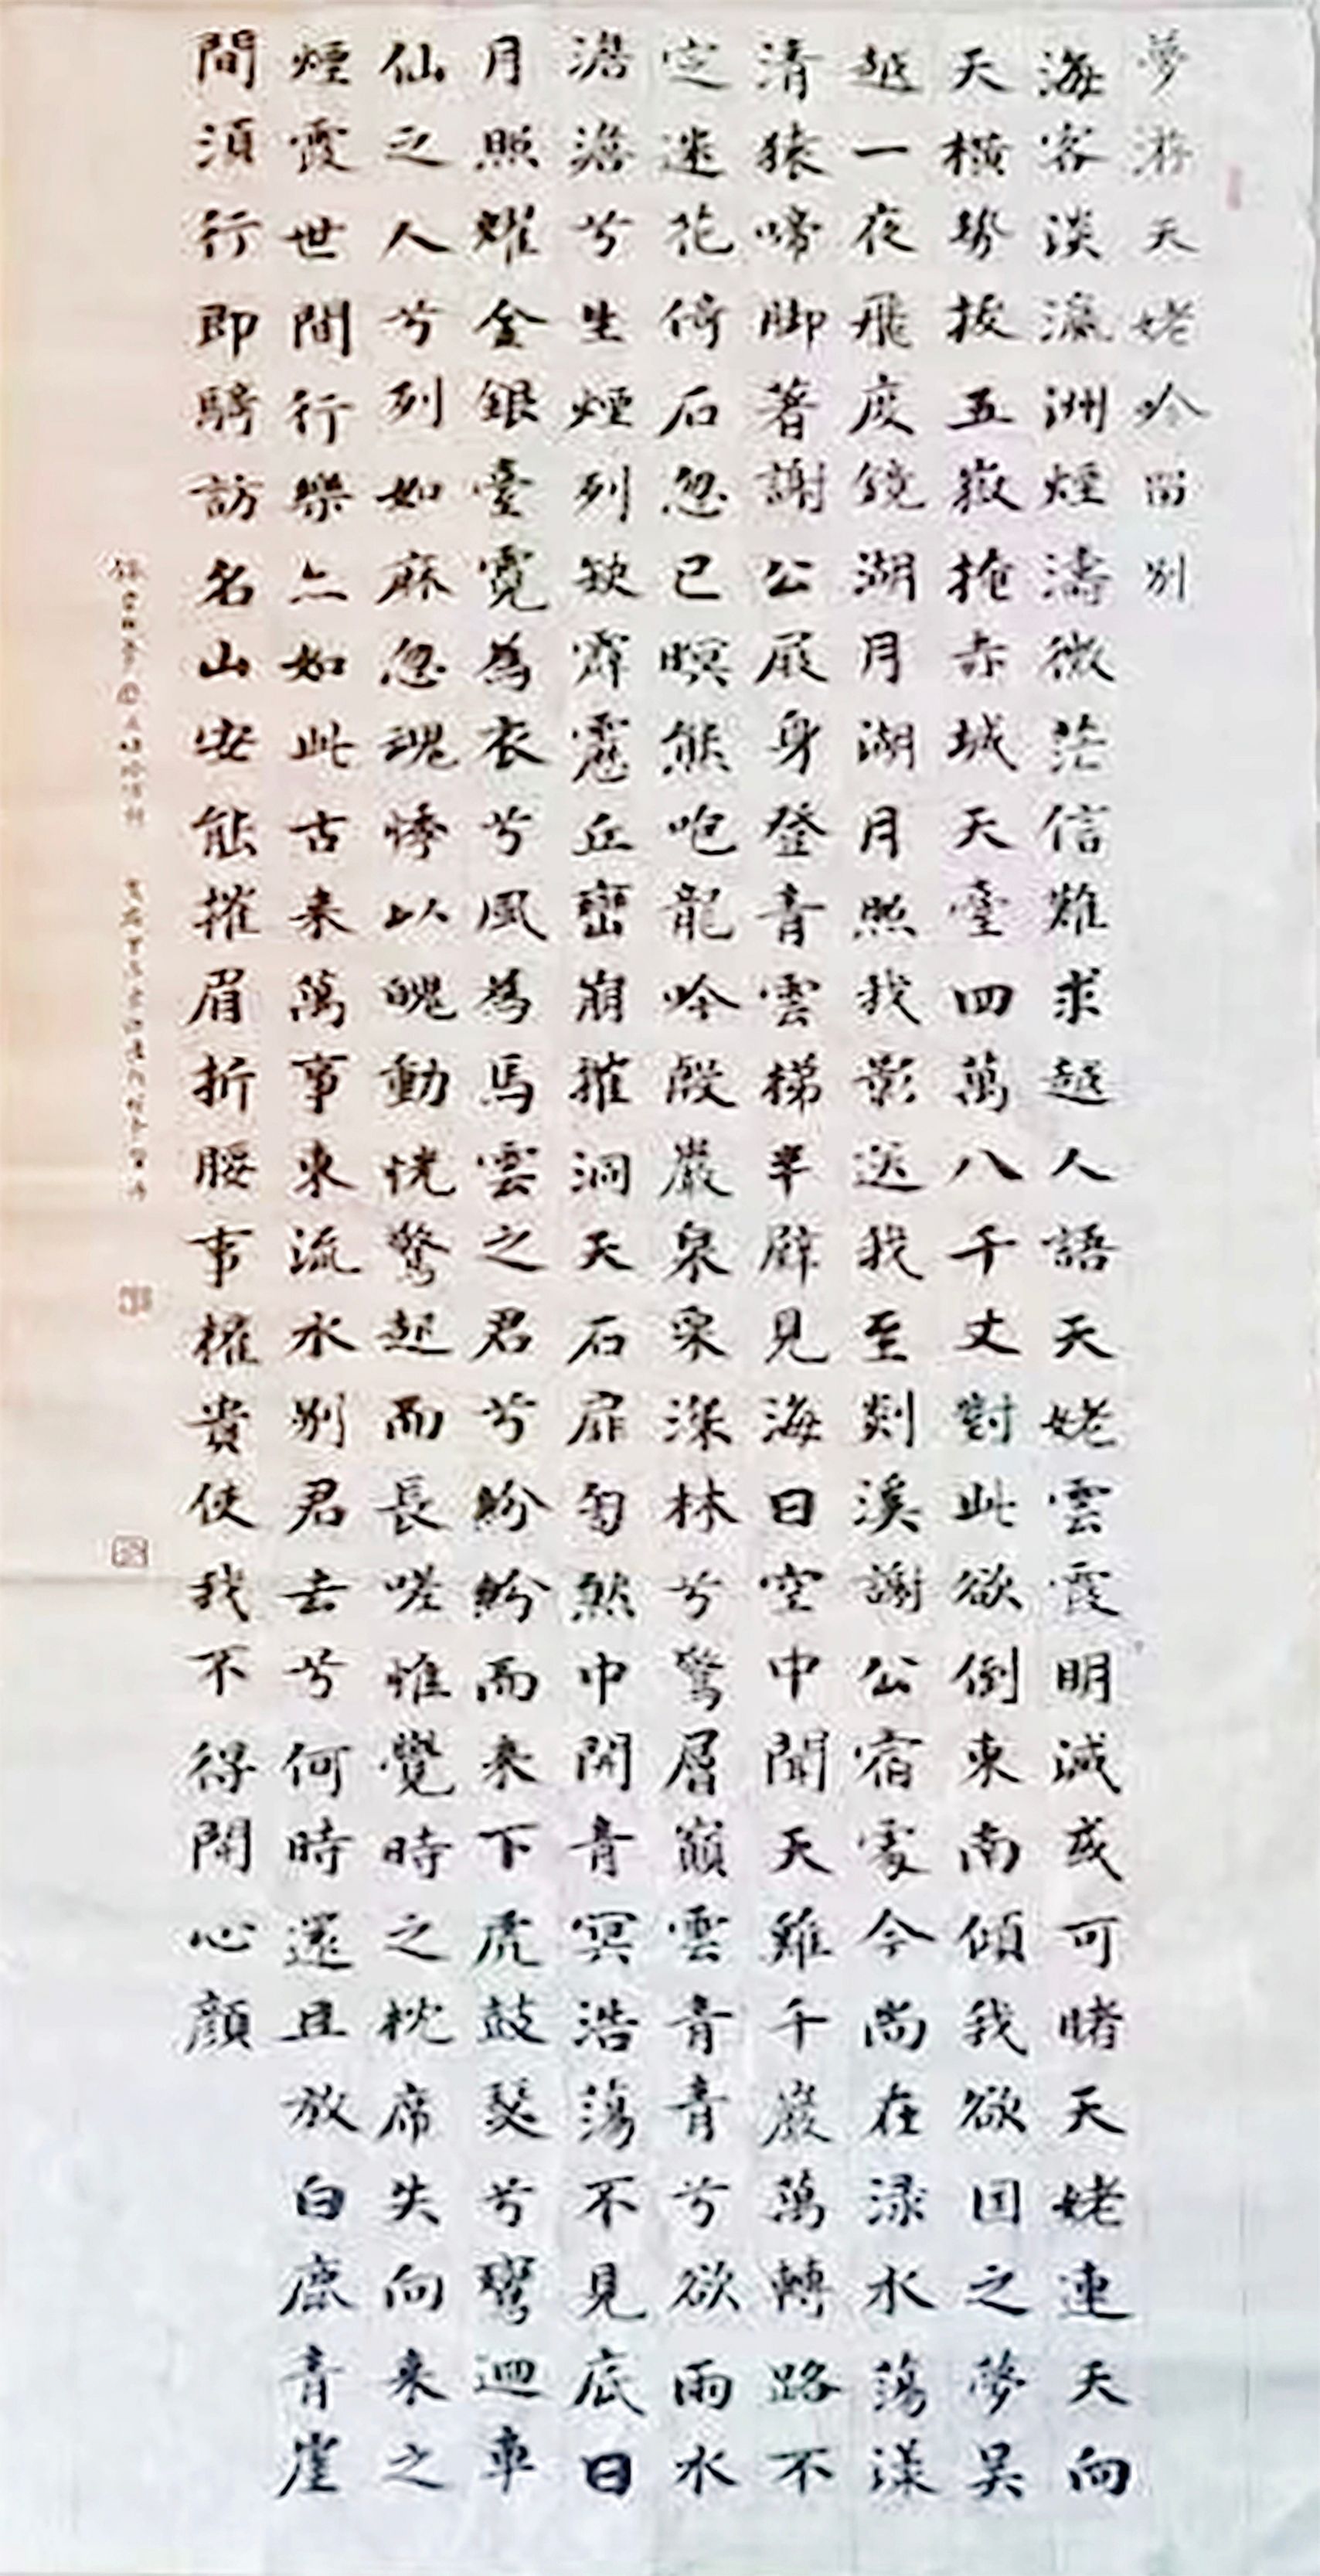 夢游天姥吟留别
海客談瀛洲煙濤微茫信難求越人語天姥雲霞明滅或可睹天姥連天向
天橫勢拔五嶽掩赤城天臺四萬八千丈對此欲倒東南傾我欲因之夢吳
越一夜飛度鏡湖月湖月照我影送我至剡溪謝公宿處今尚在渌水蕩漾
清猿啼脚著謝公屐身登青雲梯半壁見海日空中聞天雞千巖萬轉路不
定迷花倚石忽已暝熊咆龍吟殷巖泉栗深林兮驚層巔雲青青兮欲雨水
澹澹兮生煙列缺霹靂丘巒崩摧洞天石扉訇然中開青冥浩蕩不見底日
月照耀金銀臺霓為衣兮風為馬雲之君兮紛紛而来下虎鼓瑟兮鸞迴車
仙之人兮列如麻忽魂悸以魄動恍驚起而長嗟惟覺時之枕席失向来之
煙霞世間行樂亦如此古来萬事東流水别君去兮何時還且放白鹿青崖
間須行即騎訪名山安能摧眉折腰事權貴使我不得開心顔